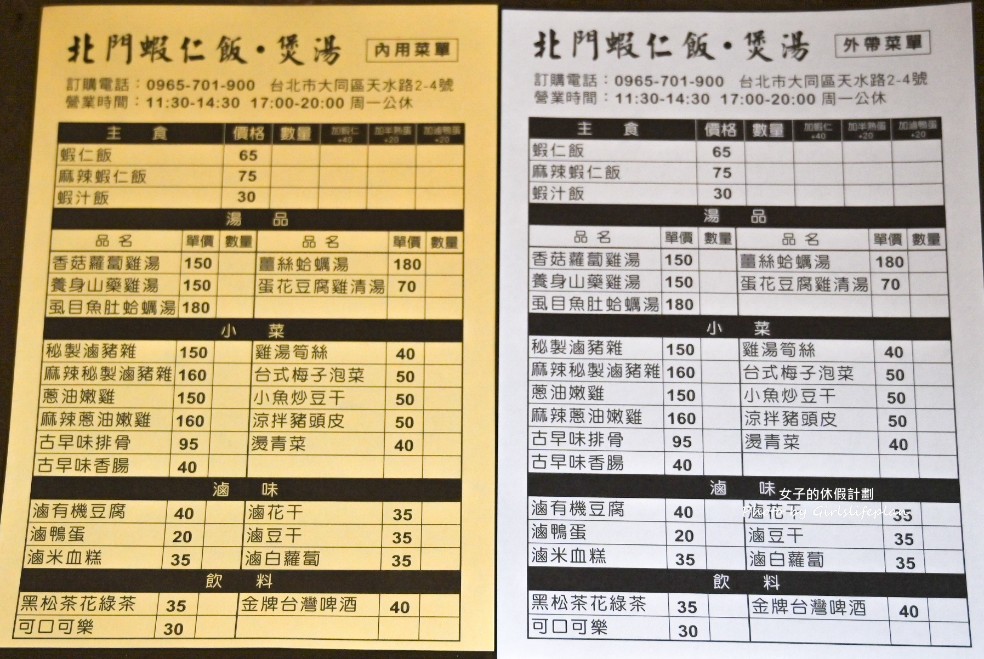 北門蝦仁飯・煲湯 內用菜單
訂購電話：0965-701-900 台北市大同區天水路2-4號
營業時間：11:30-14:30 17:00-20:00 周一公休
主 食 價格 數量 加蝦仁+40 加半熟蛋+20 加滷鴨蛋+20
蝦仁飯 65
麻辣蝦仁飯 75
蝦汁飯 30
湯 品
品名 單價 數量 品名 單價 數量
香菇蘿蔔雞湯 150 薑絲蛤蠣湯 180
養身山藥雞湯 150 蛋花豆腐雞清湯 70
虱目魚肚蛤蠣湯 180
小 菜
秘製滷豬雜 150 雞湯筍絲 40
麻辣秘製滷豬雜 160 台式梅子泡菜 50
蔥油嫩雞 150 小魚炒豆干 50
麻辣蔥油嫩雞 160 涼拌豬頭皮 50
古早味排骨 95 燙青菜 40
古早味香腸 40
滷 味
滷有機豆腐 40 滷花干 35
滷鴨蛋 20 滷豆干 35
滷米血糕 35 滷白蘿蔔 35
飲 料
黑松茶花綠茶 35 金牌台灣啤酒 40
可口可樂 30
北門蝦仁飯・煲湯 外帶菜單
訂購電話：0965-701-900 台北市大同區天水路2-4號
營業時間：11:30-14:30 17:00-20:00 周一公休
主 食 價格 數量 加蝦仁+40 加半熟蛋+20 加滷鴨蛋+20
蝦仁飯 65
麻辣蝦仁飯 75
蝦汁飯 30
湯 品
品名 單價 數量 品名 單價 數量
香菇蘿蔔雞湯 150 薑絲蛤蠣湯 180
養身山藥雞湯 150 蛋花豆腐雞清湯 70
虱目魚肚蛤蠣湯 180
小 菜
秘製滷豬雜 150 雞湯筍絲 40
麻辣秘製滷豬雜 160 台式梅子泡菜 50
蔥油嫩雞 150 小魚炒豆干 50
麻辣蔥油嫩雞 160 涼拌豬頭皮 50
古早味排骨 95 燙青菜 40
古早味香腸 40
滷 味
女子的休假計劃
Photo by Girlslifeplan
滷有機豆腐 40 滷花干 35
滷鴨蛋 20 滷豆干 35
滷米血糕 35 滷白蘿蔔 35
飲 料
黑松茶花綠茶 35 金牌台灣啤酒 40
可口可樂 30